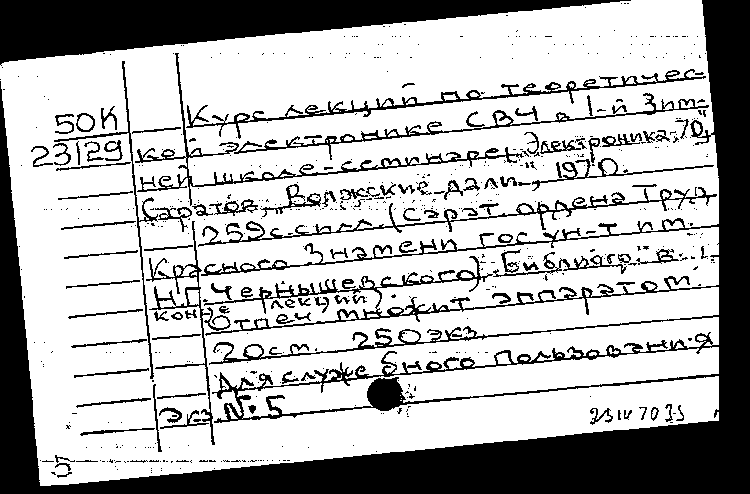 50К
23129
Курс лекций по теоретичес-
кой электронике СВЧ в 1-й Зим-
ней школе-семинаре „Электроника-70",
Саратов, „Волжские дали", 1970.
259с. с илл. (Сарат. ордена Труд.
Красного Знамени гос ун-т им.
Н.Г. Чернышевского). Библиогр. в
конце лекций.
Отпеч. множит аппаратом.
20см. 250экз.
Для служебного пользования
Экз. №5.
5